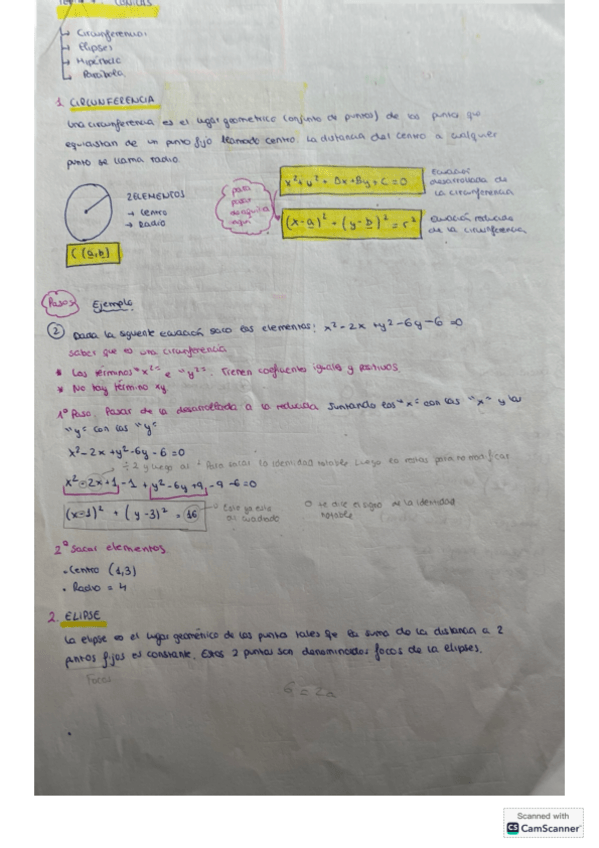 CÓNICAS
Circunferencias
Elipses
Hipérbole
Parábola
1. CIRCUNFERENCIA
Una circunferencia es el lugar geometrico (conjunto de puntos) de los puntos que
equidistan de un punto fijo llamado centro. La distancia del centro a cualquier
punto se llama radio.
2 ELEMENTOS
→ Centro
→ Radio
C (a,b)
para
pasar
de aquí a
aquí
x²+y²+Ax+By+C=0
Ecuación
desarrollada de
la circunferencia
(x-a)²+(y-b)²=r²
ecuación reducida
de la circunferencia
Pasos
Ejemplo:
2 Dada la siguente ecuación saco los elementos: x²-2x+y²-6y-6=0
saber que es una circunferencia
* Los términos "x²" e "y²". Tienen coeficientes iguales y positivos.
* No hay término xy
1º Paso. Pasar de la desarrollada a la reducida juntando las "x" con las "x" y las
"y" con las "y"
x²-2x+y²-6y-6=0
÷2 y luego al ² Para sacar la identidad notable Luego lo restas para no modificar
x²-2x+1-1+y²-6y+9-9-6=0
(x-1)²+(y-3)²=16
Este ya esta
al cuadrado
te dice el signo de la identidad
notable
2º Sacar elementos
• Centro (1,3)
• Radio = 4
2. ELIPSE
La elipse es el lugar geométrico de los puntos tales que la suma de la distancia a 2
puntos fijos es constante. Estos 2 puntos son denominados focos de la elipses.
Focos
6=2a
Scanned with
CS CamScanner